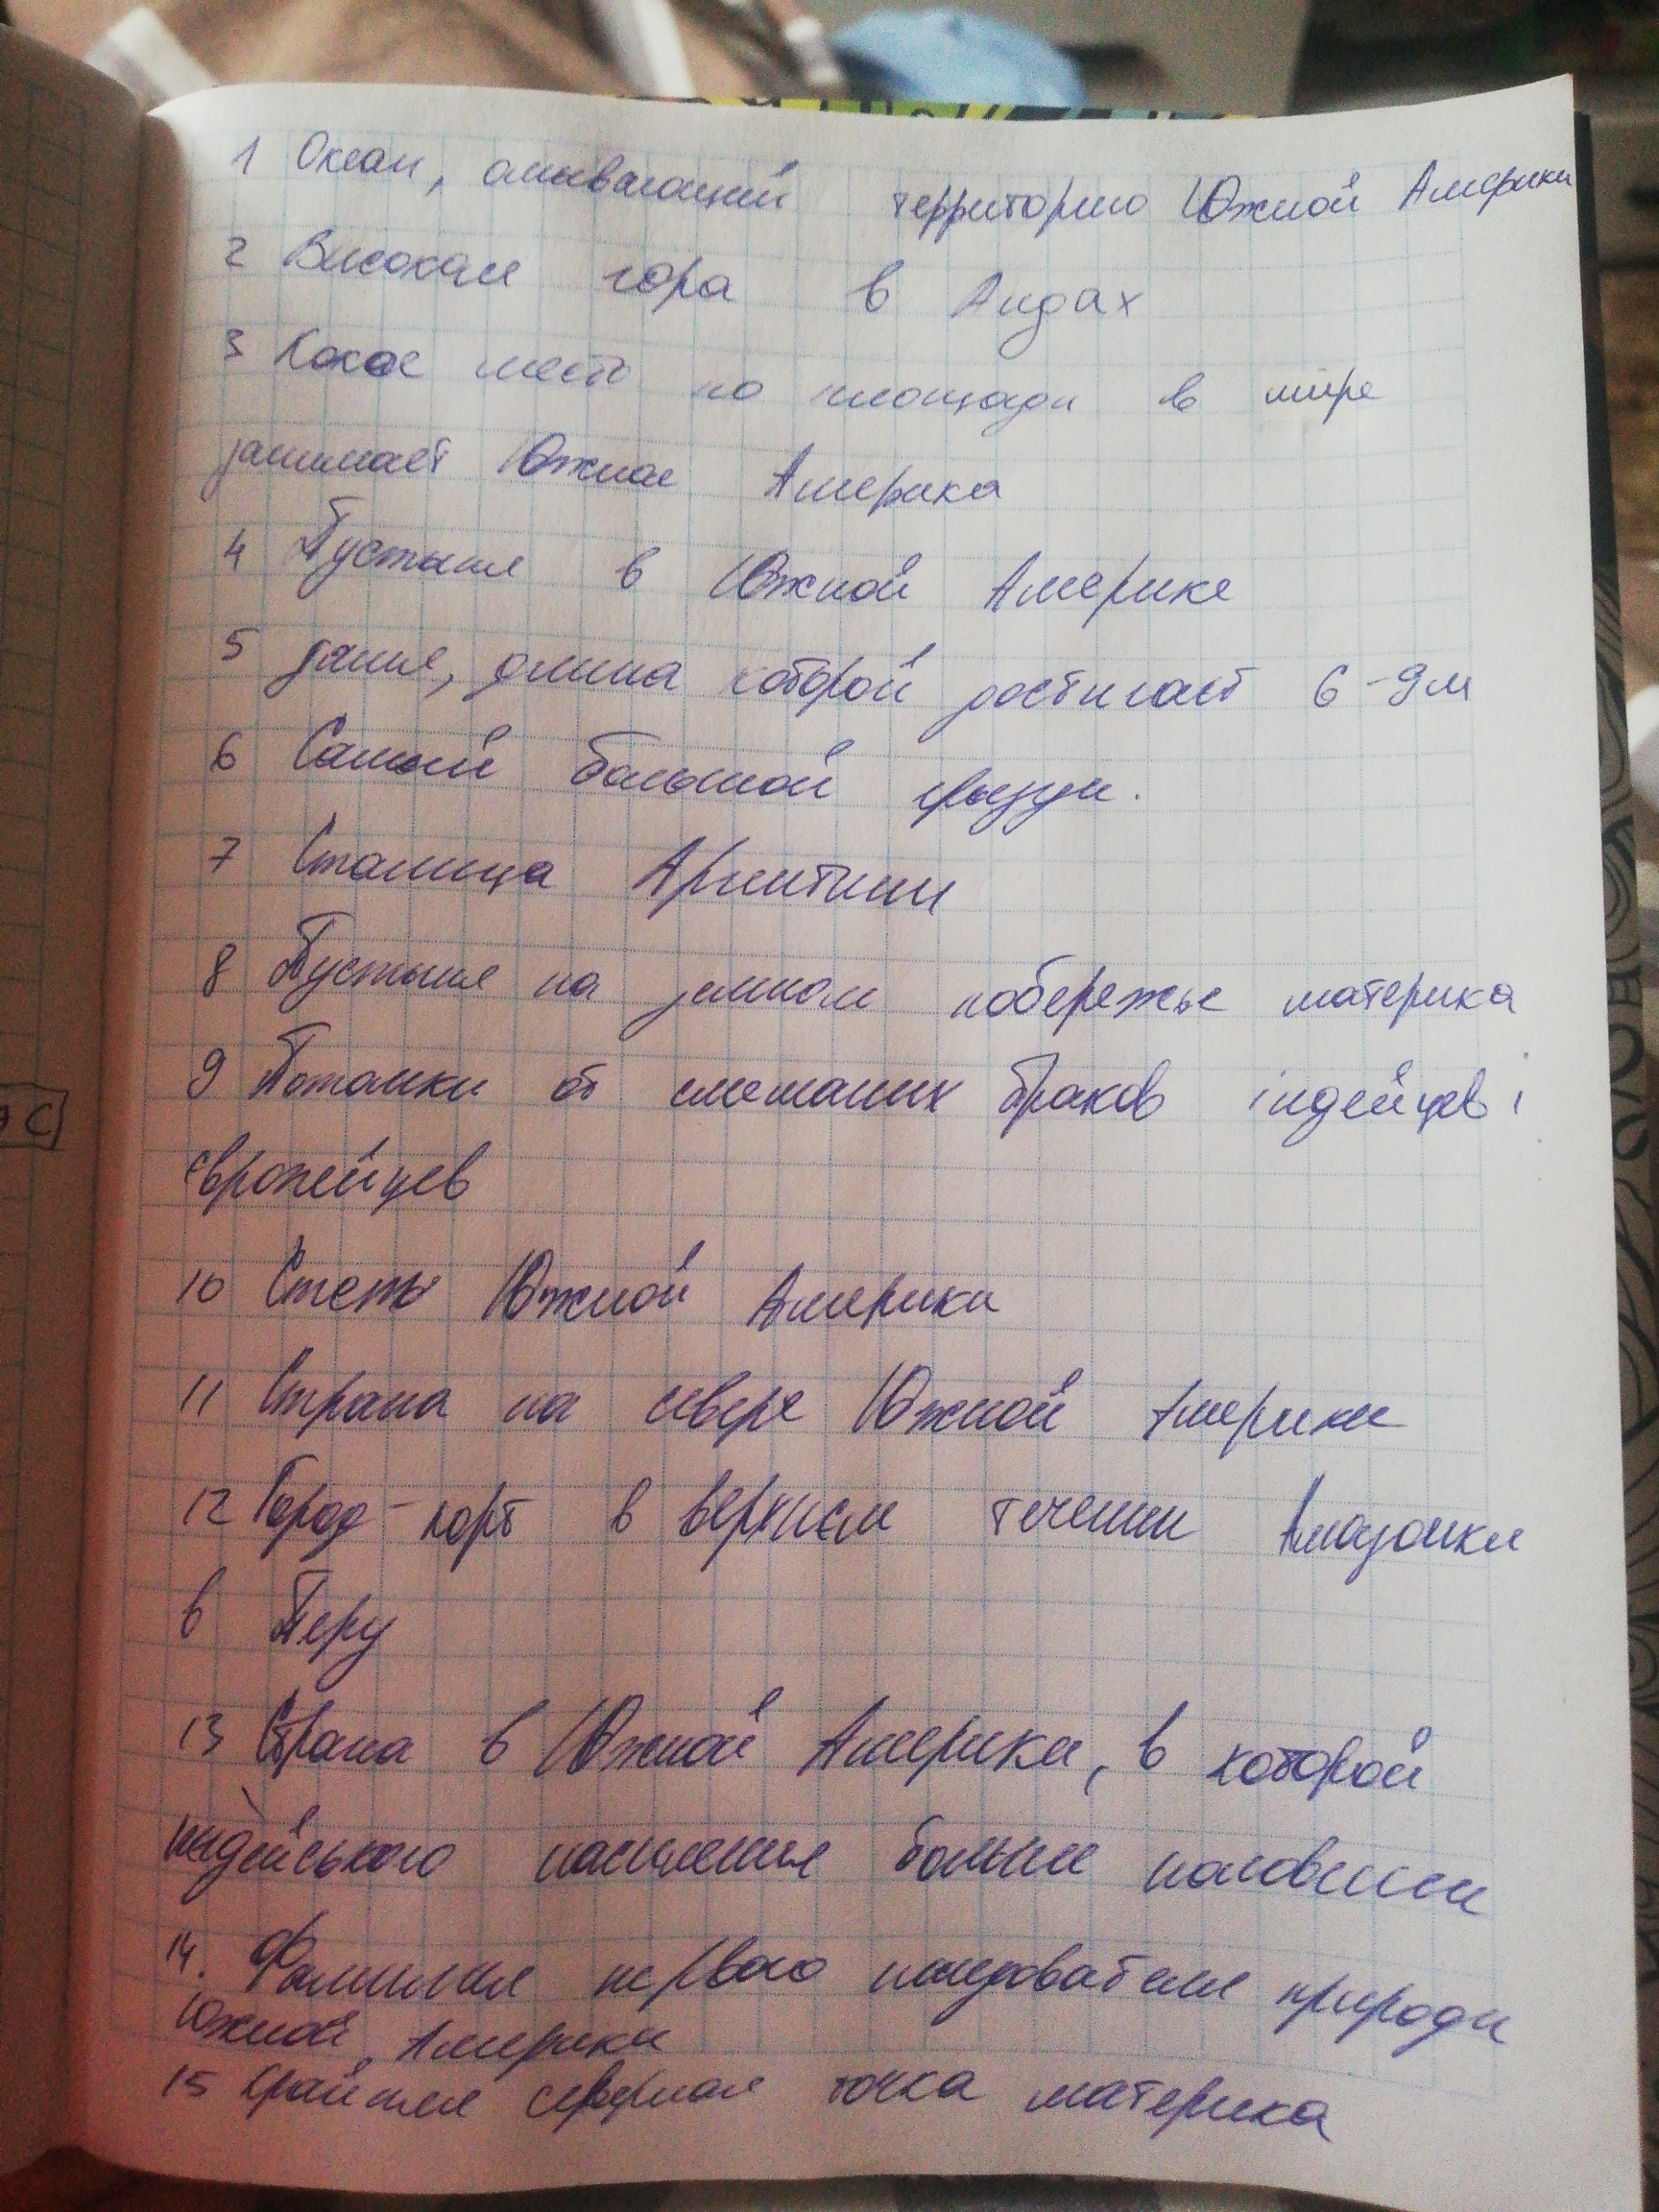 1 Океан, омывающий территорию Южной Америки
2 Високая гора в Андах
3 Какое место по площади в мире
занимает Южная Америка
4 Пустыня в Южной Америке
5 длина которой достигает 6-9м
6 Самый большой грызун.
7 Столица Аргентини
8 Пустыня на побережье материка
9 Потомки от смешаних браков індейцев і
європейцев
10 Степь Южной Америки
11 Страна на севере Южной Америки
12 Город-порт в верхнем течении Амазонки
в Перу
13 Страна в Южной Америки, в которой
индейського население больше половини
14. Фамилия первого исследователя природи
Южной Америки
15 Крайняя северная точка материка